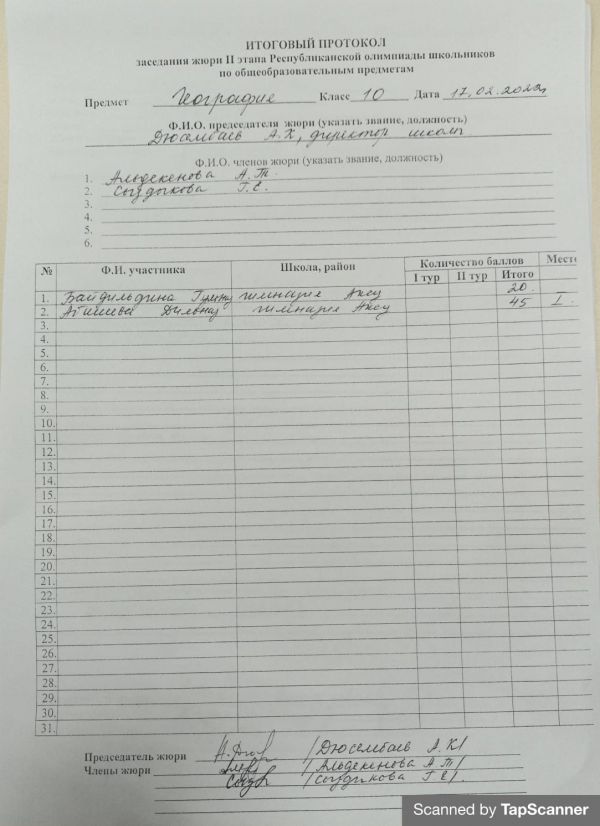 ИТОГОВЫЙ ПРОТОКОЛ
заседания жюри II этапа Республиканской олимпиады школьников
по общеобразовательным предметам
Предмет География Класс 10 Дата 17.02.2022г
Ф.И.О. председателя жюри (указать звание, должность)
Дюсембаев А.К, директор школы
Ф.И.О. членов жюри (указать звание, должность)
1. Альдекенова А.Т.
2. Сыздыкова Г.Е.
3.
4.
5.
6.
№ Ф.И. участника Школа, район Количество баллов Место
I тур II тур Итого
1. Байдильдина гимназия Аксу 20.
2. Абишева Дильназ гимназия Аксу 45 I.
3.
4.
5.
6.
7.
8.
9.
10.
11.
12.
13.
14.
15.
16.
17.
18.
19.
20.
21.
22.
23.
24.
25.
26.
27.
28.
29.
30.
31.
Председатель жюри /Дюсембаев А.К/
Члены жюри /Альдекенова А.Т/
/Сыздыкова Г.Е/.
Scanned by TapScanner